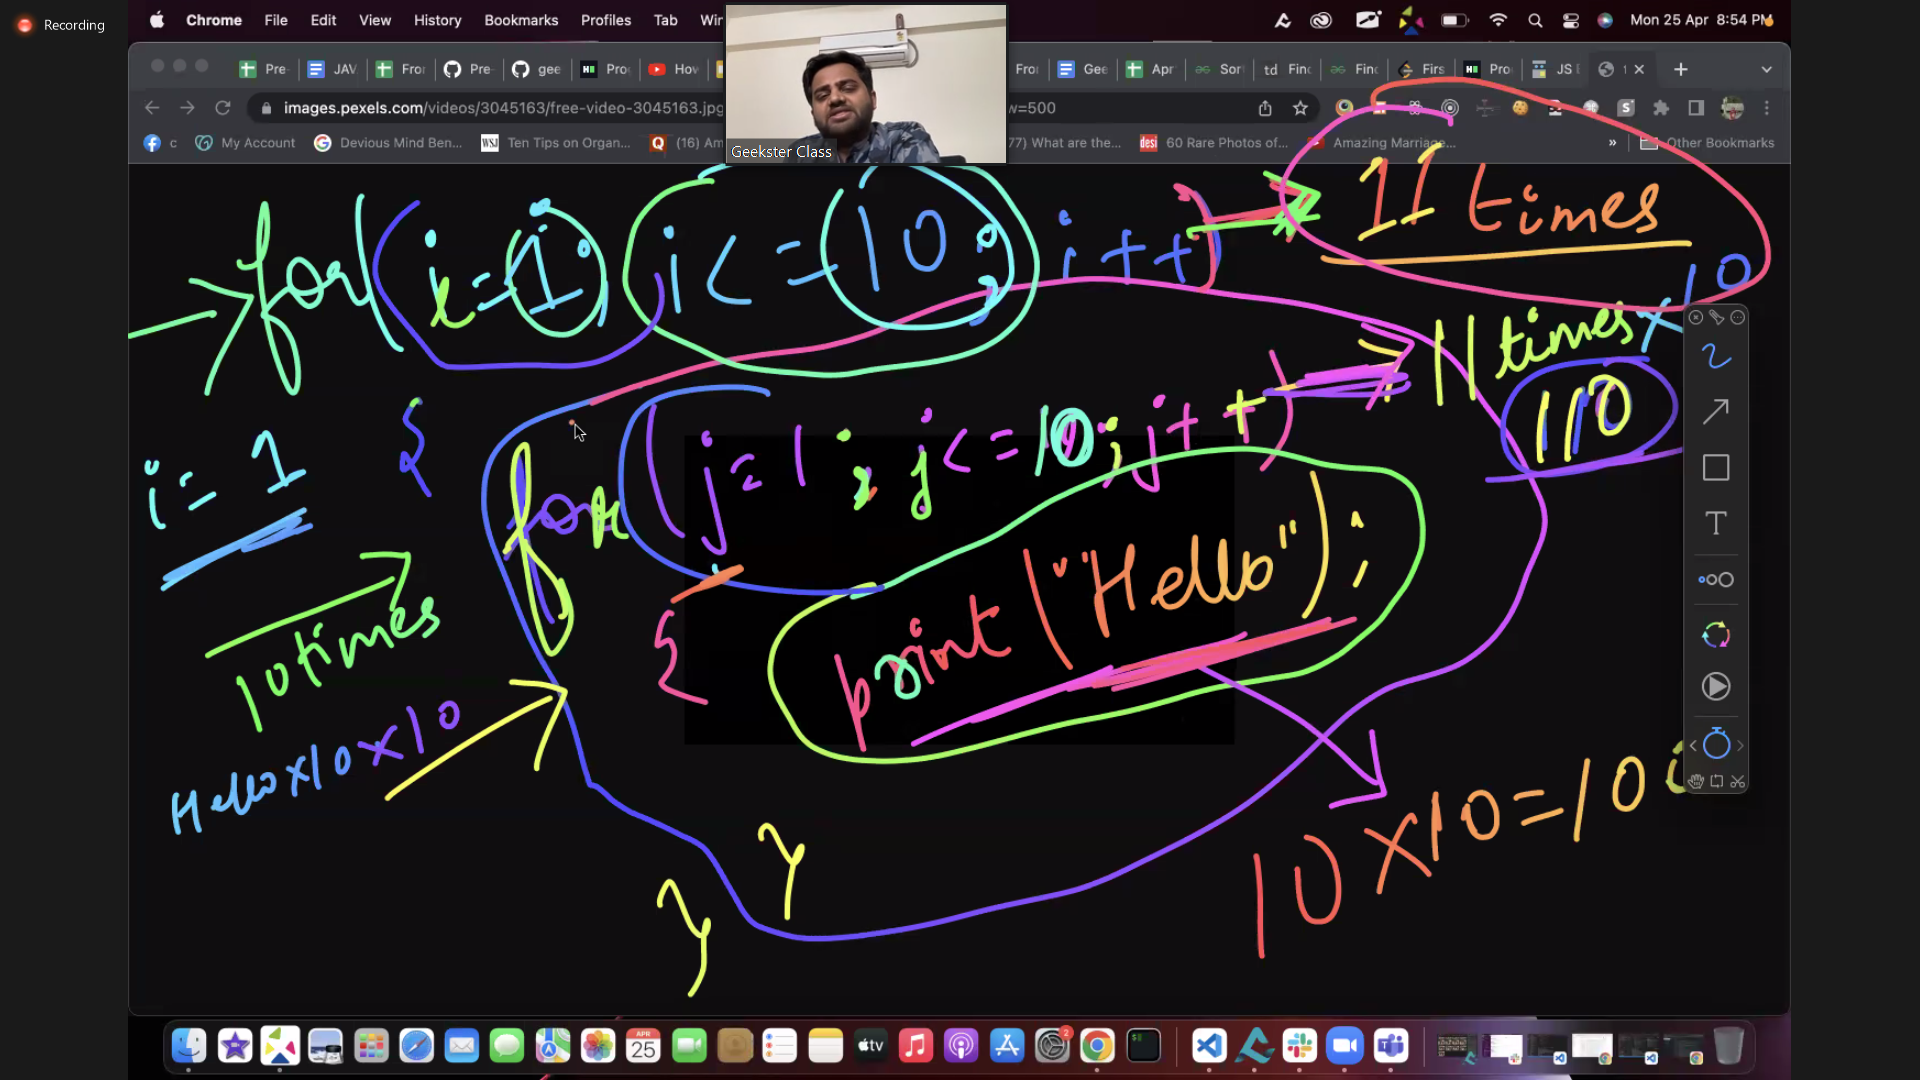 Recording
Chrome File Edit View History Bookmarks Profiles Tab Mon 25 Apr 8:54 PM
Pre- JAV Pre- gee Pro How Gee Apr Sor Find Firs Pro JS
images.pexels.com/videos/3045163/free-video-3045163.jpg w=500
c My Account Devious Mind Ben... Ten Tips on Organ... (16) Am 77) What are the... 60 Rare Photos of... Amazing Marriage... » Other Bookmarks
Geekster Class
for(i=1; i<=10; i++) 11 times
11 times x 10
110
i=1 {
for(j=1; j<=10; j++)
{ print("Hello");
10 times
Hello x10 x10
10x10=100
}
}
APR
25
tv
2